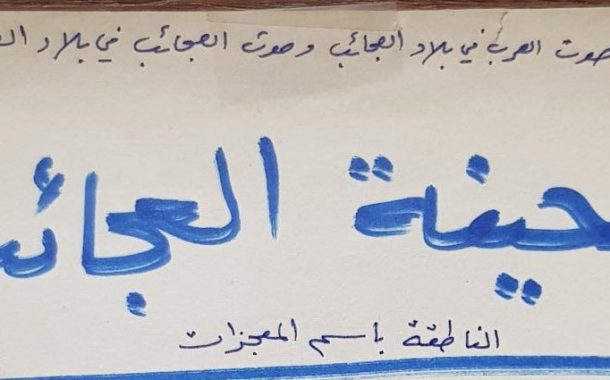 صوت العرب في بلاد العجائب وصوت العجائب في بلاد ال
حيفة العجائ
الناطقة باسم المعجزات